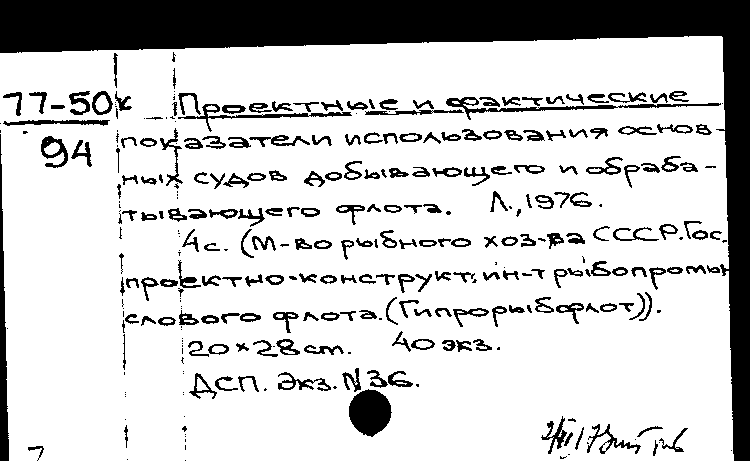 77-50к Проектные и фактические
94 показатели использования основ-
ных судов добывающего и обраба-
тывающего флота. Л., 1976.
4с. (М-во рыбного хоз-ва СССР. Гос.
проектно-конструкт. ин-т рыбопромы
слового флота. (Гипрорыбфлот)).
20×28 cm. 40 экз.
ДСП. Экз. N 36.
7